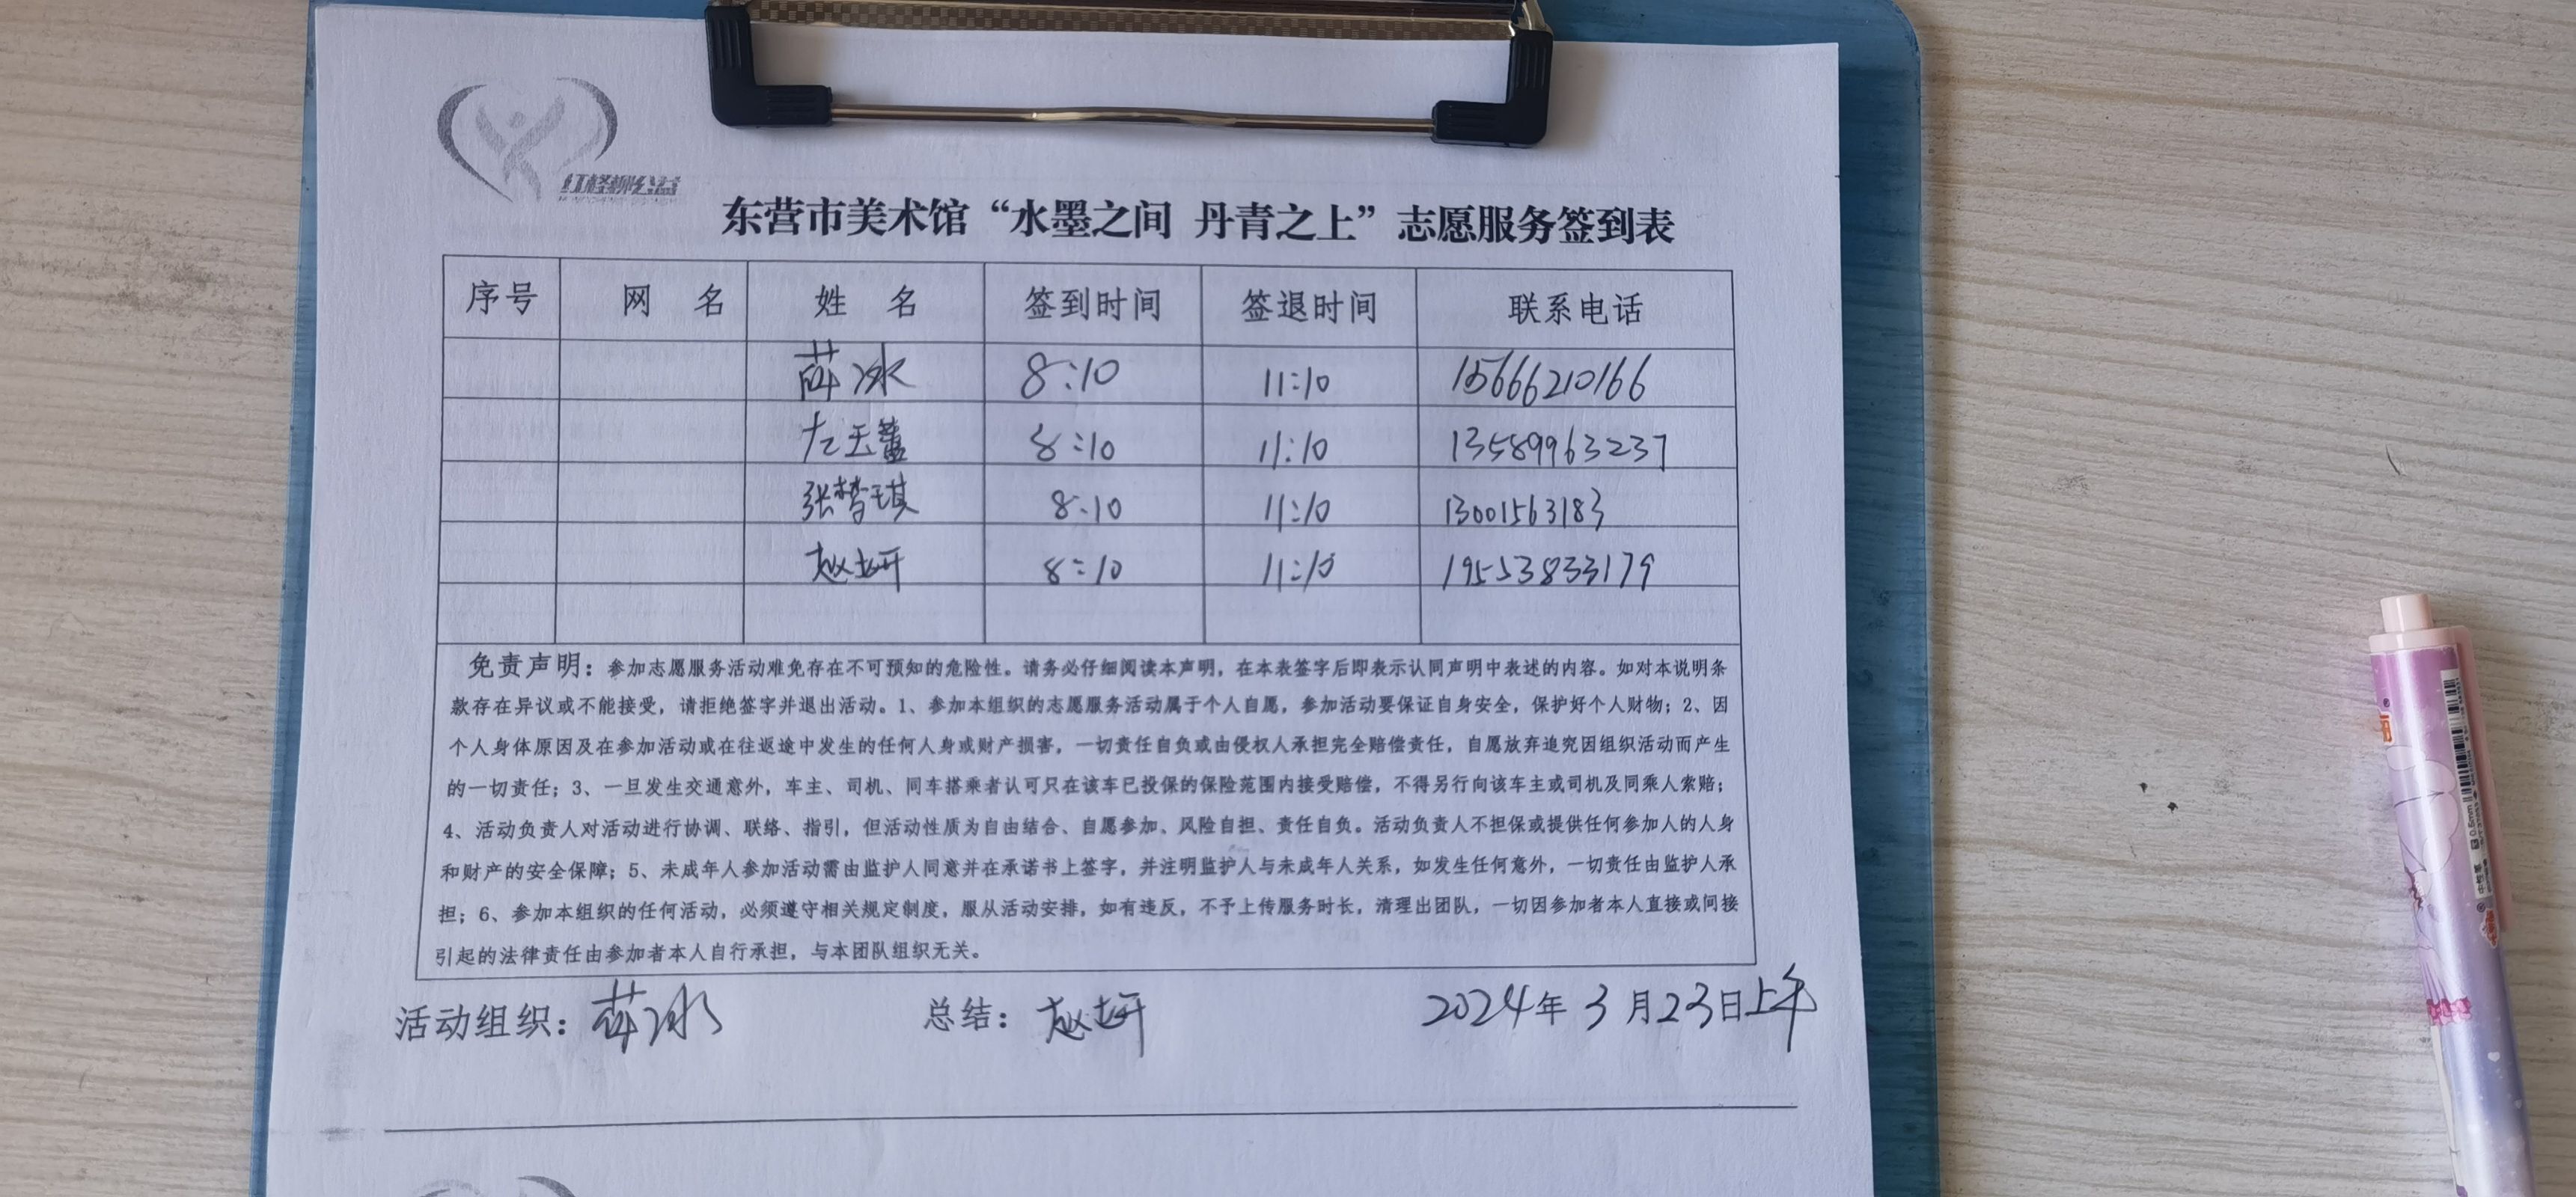 红柽柳公益
东营市美术馆“水墨之间 丹青之上”志愿服务签到表
序号 网 名 姓 名 签到时间 签退时间 联系电话
薛冰 8:10 11:10 15666210166
左玉蘁 8:10 11:10 13589963237
张梦琪 8:10 11:10 13001563183
赵妍 8:10 11:10 19553833179
免责声明：参加志愿服务活动难免存在不可预知的危险性。请务必仔细阅读本声明，在本表签字后即表示认同声明中表述的内容。如对本说明条
款存在异议或不能接受，请拒绝签字并退出活动。1、参加本组织的志愿服务活动属于个人自愿，参加活动要保证自身安全，保护好个人财物；2、因
个人身体原因及在参加活动或在往返途中发生的任何人身或财产损害，一切责任自负或由侵权人承担完全赔偿责任，自愿放弃追究因组织活动而产生
的一切责任；3、一旦发生交通意外，车主、司机、同车搭乘者认可只在该车已投保的保险范围内接受赔偿，不得另行向该车主或司机及同乘人索赔；
4、活动负责人对活动进行协调、联络、指引，但活动性质为自由结合、自愿参加、风险自担、责任自负。活动负责人不担保或提供任何参加人的人身
和财产的安全保障；5、未成年人参加活动需由监护人同意并在承诺书上签字，并注明监护人与未成年人关系，如发生任何意外，一切责任由监护人承
担；6、参加本组织的任何活动，必须遵守相关规定制度，服从活动安排，如有违反，不予上传服务时长，清理出团队，一切因参加者本人直接或间接
引起的法律责任由参加者本人自行承担，与本团队组织无关。
活动组织：薛冰 总结：赵妍 2024年3月23日上午
0.5mm